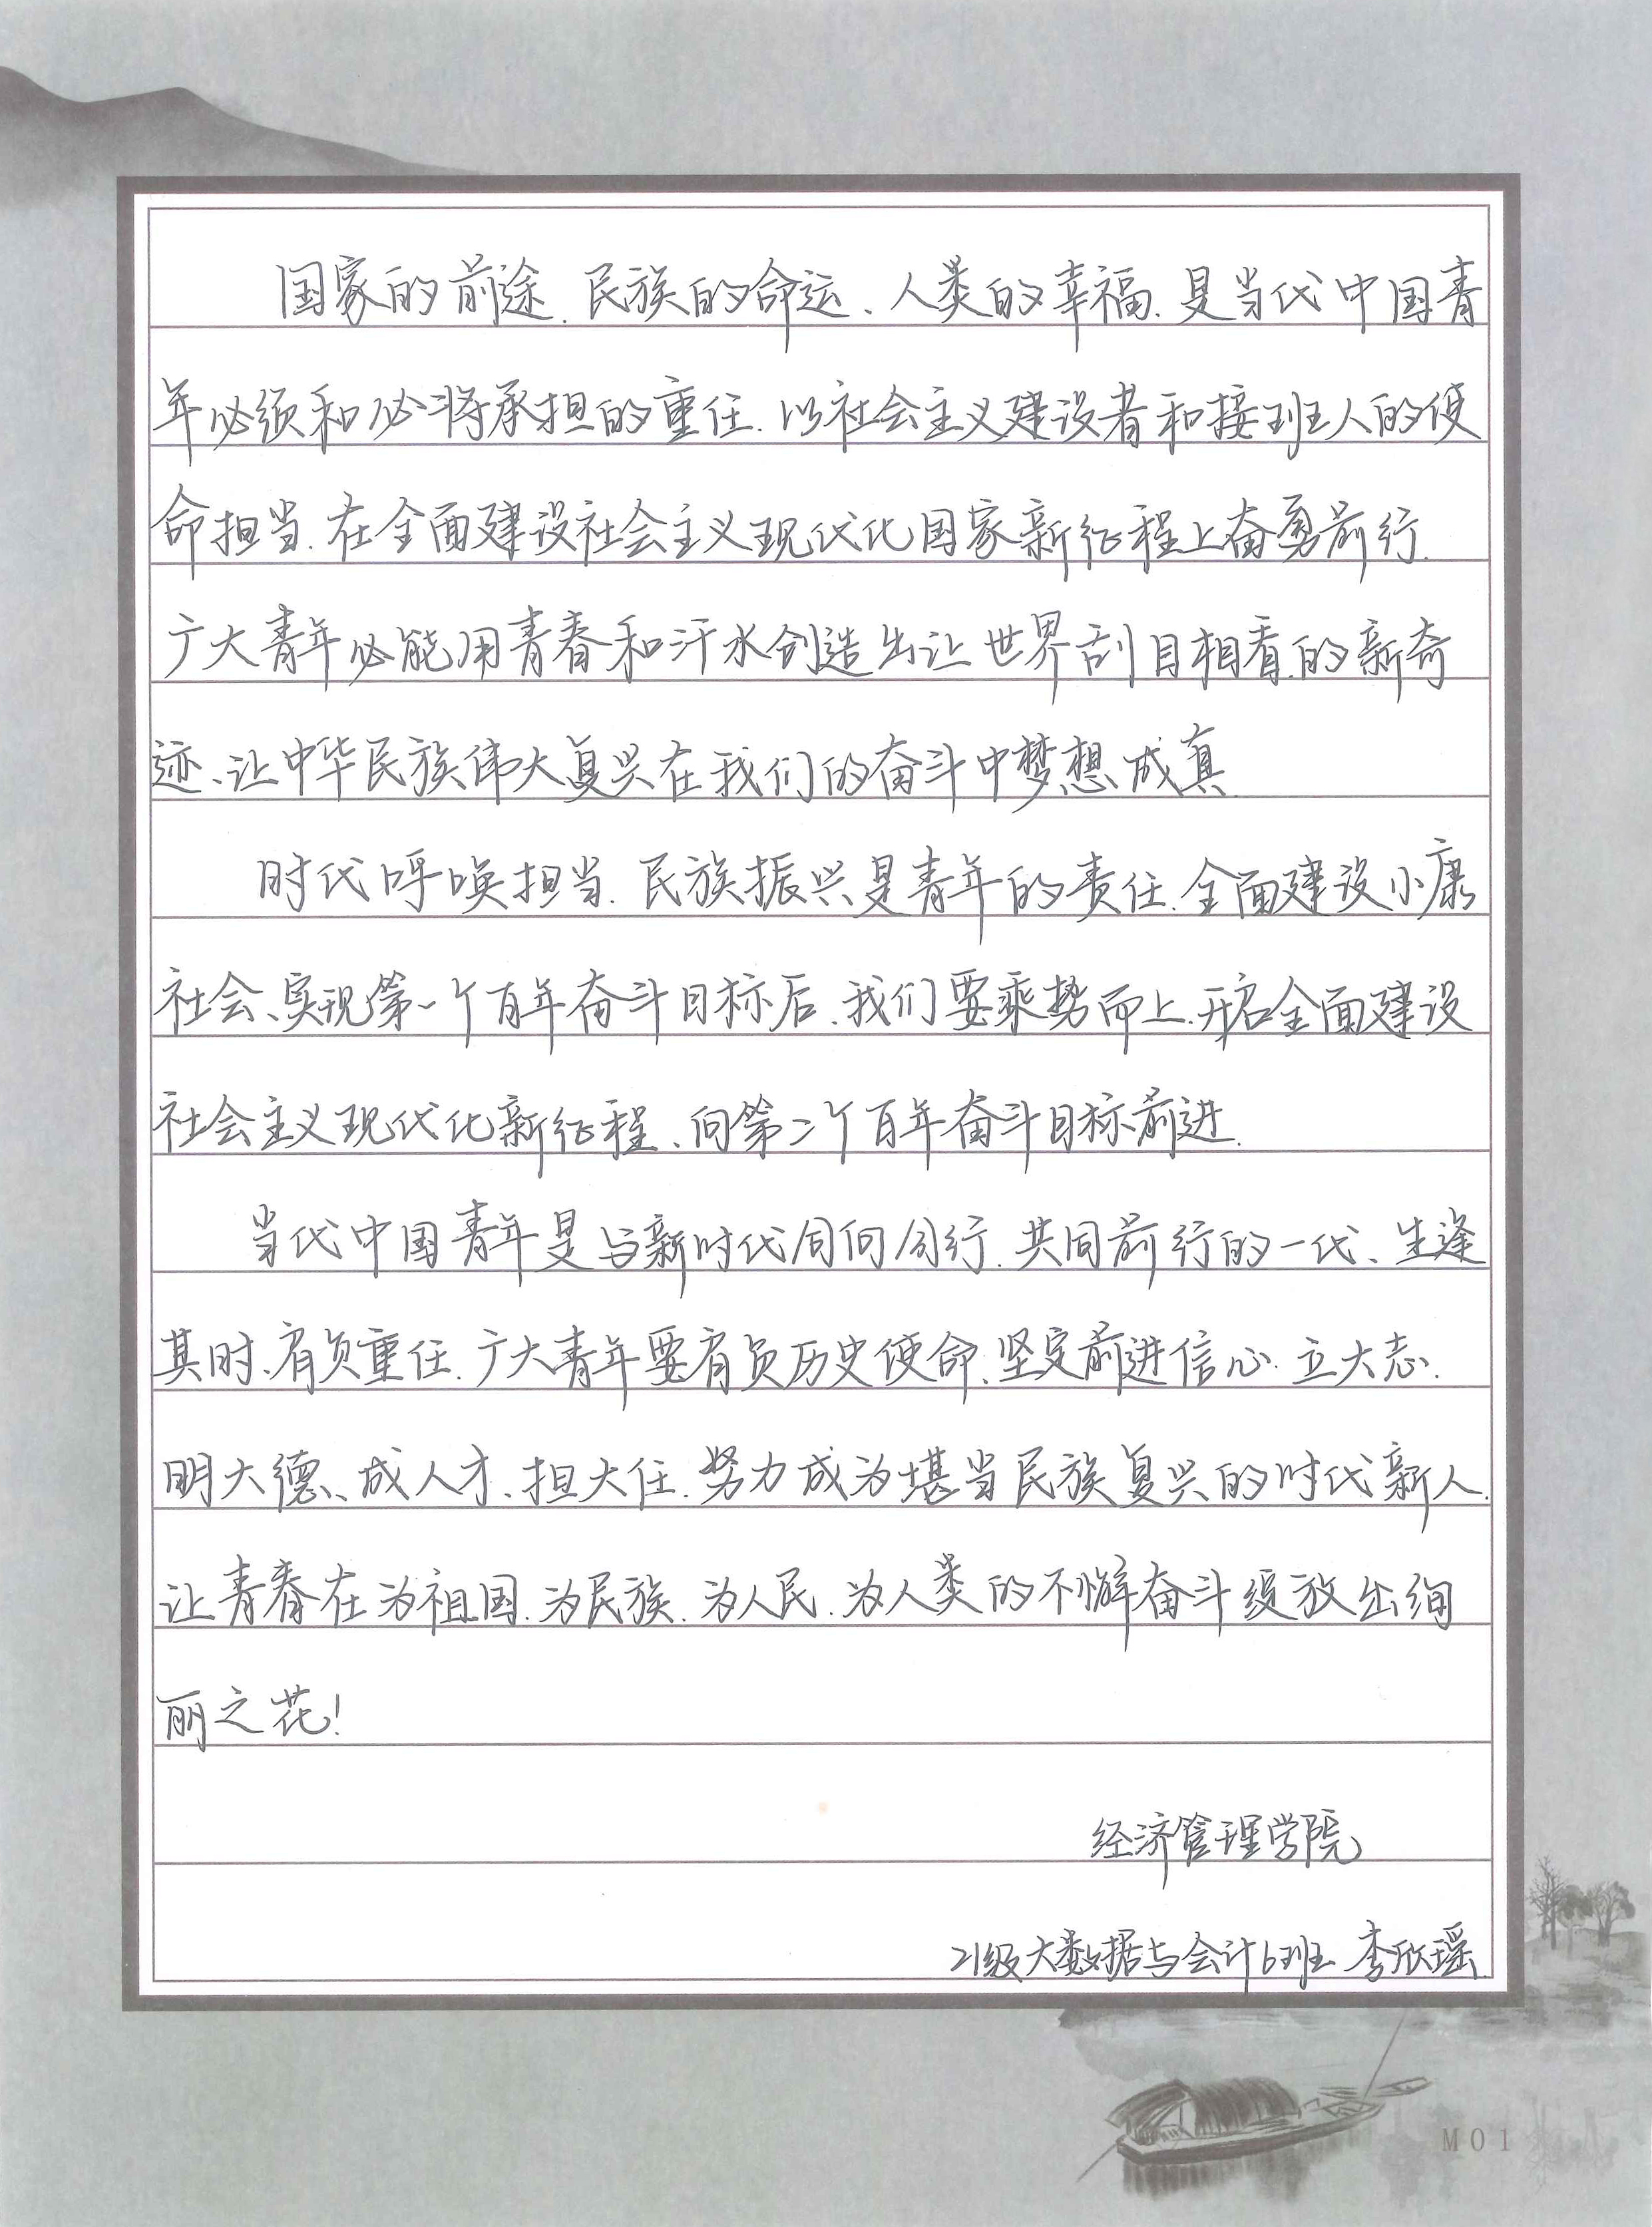 国家的前途、民族的命运、人类的幸福、是当代中国青
年必须和必将承担的重任.以社会主义建设者和接班人的使
命担当.在全面建设社会主义现代化国家新征程上奋勇前行.
广大青年必能用青春和汗水创造出让世界刮目相看的新奇
迹、让中华民族伟大复兴在我们的奋斗中梦想成真.
时代呼唤担当.民族振兴是青年的责任.全面建设小康
社会、实现第一个百年奋斗目标后.我们要乘势而上.开启全面建设
社会主义现代化新征程、向第二个百年奋斗目标前进.
当代中国青年是与新时代同向同行.共同前行的一代、生逢
其时、肩负重任.广大青年要肩负历史使命.坚定前进信心.立大志.
明大德、成人才、担大任.努力成为堪当民族复兴的时代新人.
让青春在为祖国.为民族.为人民.为人类的不懈奋斗绽放出绚
丽之花!
经济管理学院
21级大数据与会计6班 李欣瑶
M01